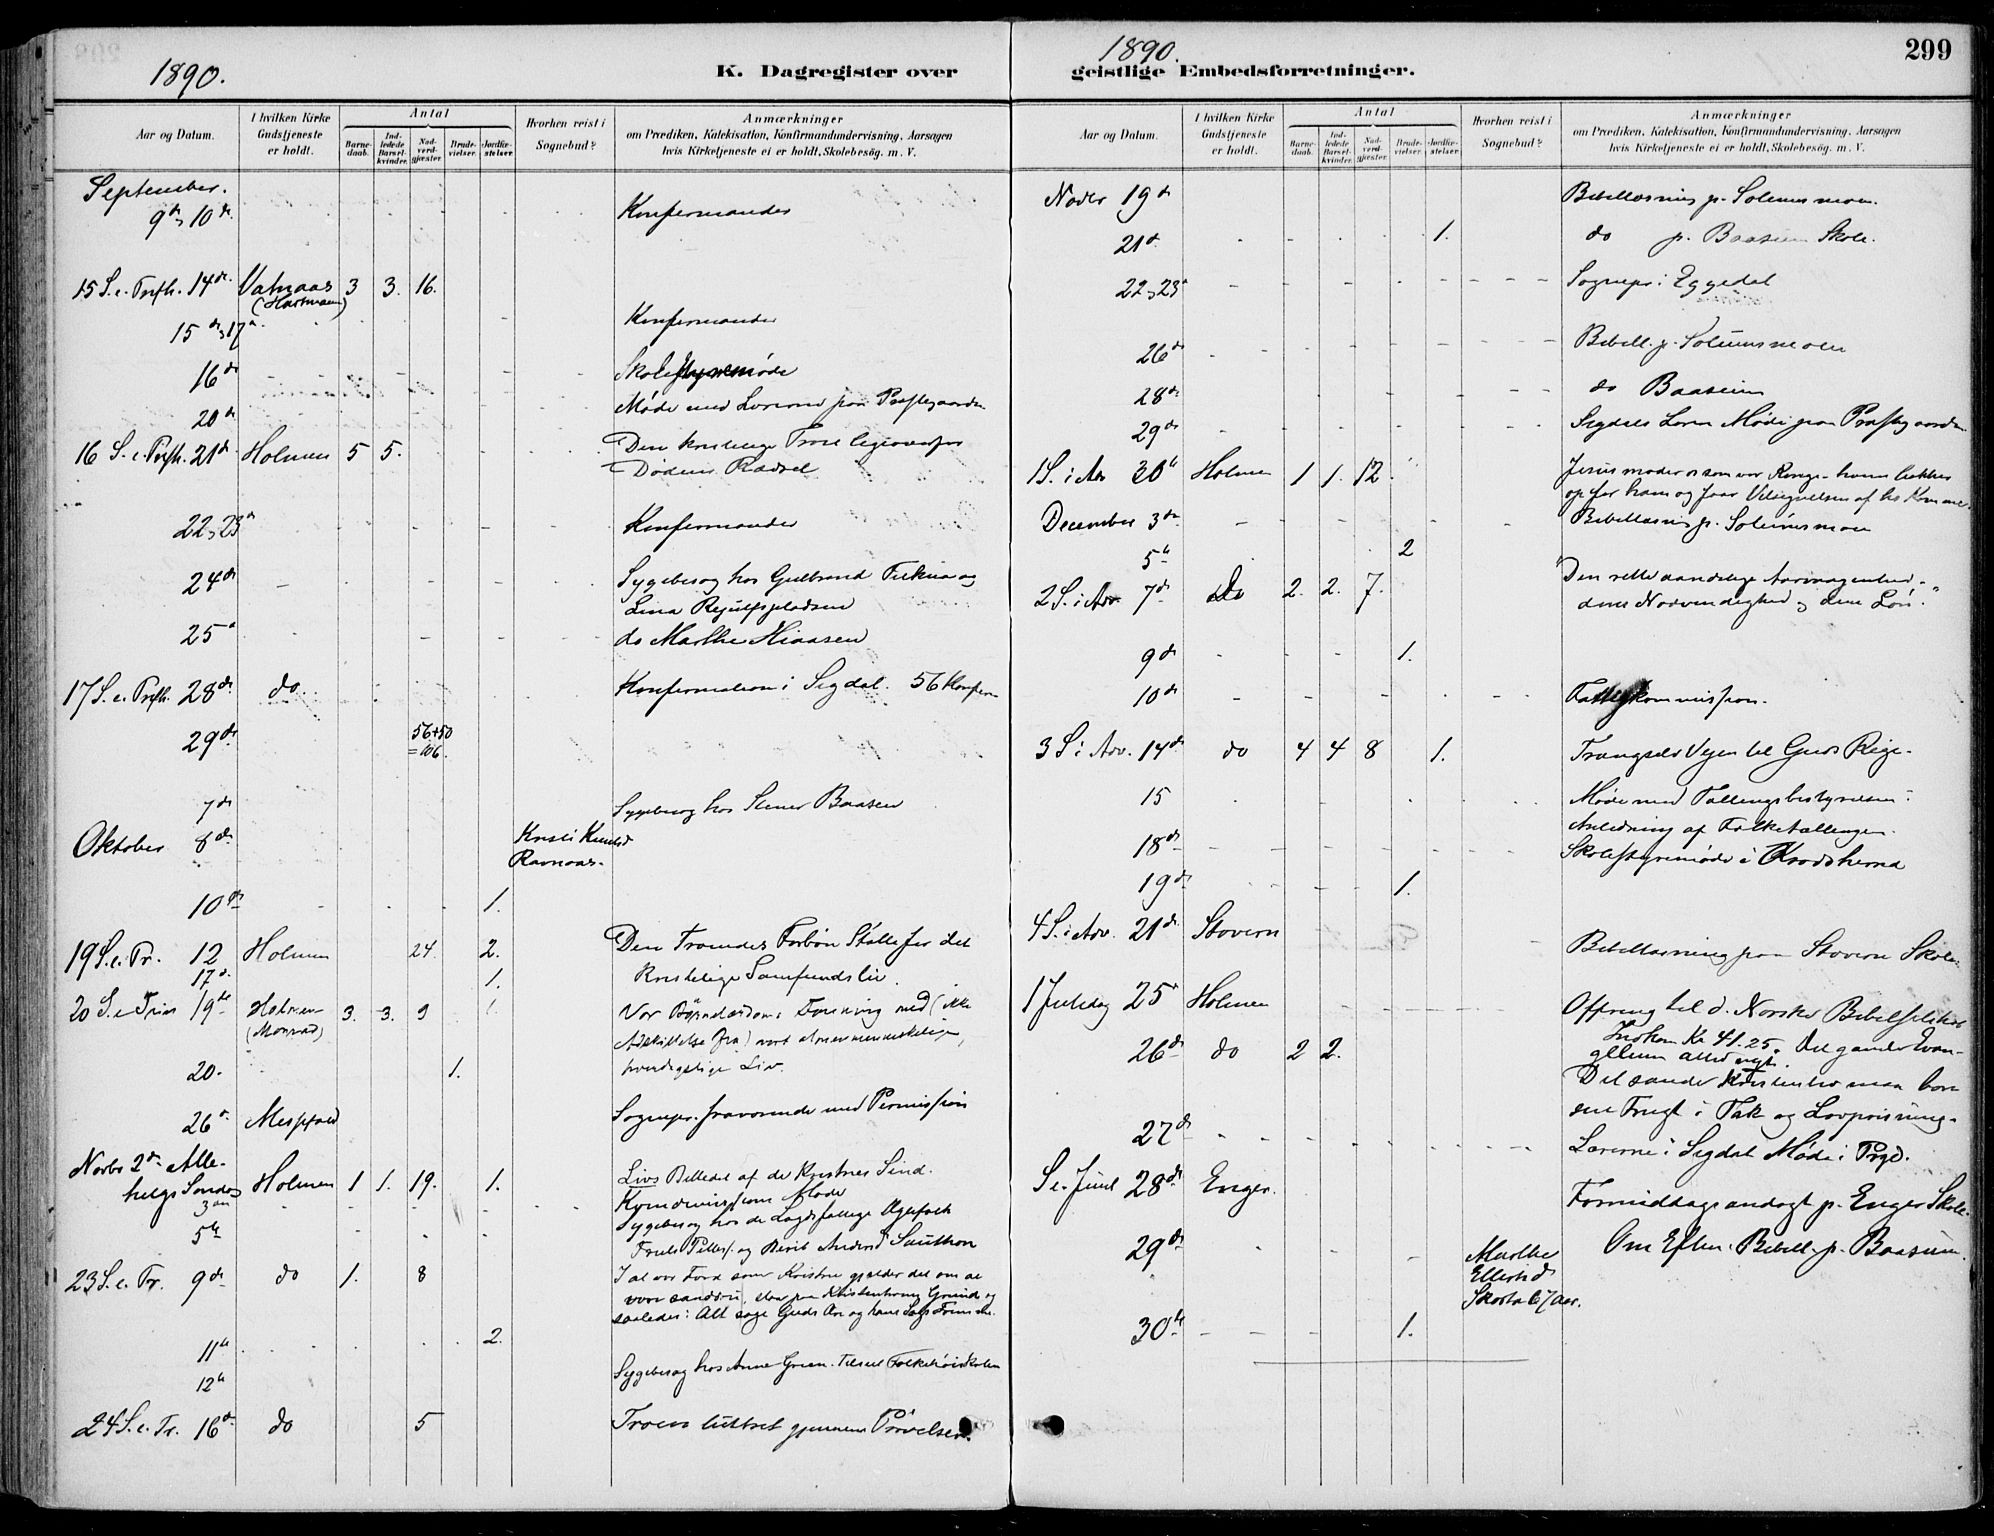 1890.
K. Dagregister over
Aar og Datum.
I hvilken Kirke Gudstjeneste er holdt.
Antal
Barnedaab.
Indledede Barselkvinder.
Nadverdgjester.
Brudevielser.
Jordfæstelser.
Hvorhen reist i Sognebud?
Anmærkninger
om Prædiken, Katekisation, Konfirmandundervisning, Aarsagen
hvis Kirketjeneste ei er holdt, Skolebesög. m. V.
September.
9de, 10de Konfirmander
15 S. e. Trefh. 14de Vatnaas 3 3. 16.
(Hartmann)
15de, 17de Konfirmander
16de Skolestyremøde
20de Møde med Lærerne paa Præstegaarden
16 S. e. Trefh. 21de Holmen 5 5. Den kristelige Trost ligeoverfor
Dødens Rædsel
22, 23de Konfirmander
24de Sygebesøg hos Gulbrand og
Lina
25de do Marthe Hiaasen
17 S. e. Trefh. 28de do Konfirmation i Sigdal. 56 Konfirm
29de 56+50
=106.
7de Sygebesøg hos Stener Baasen
Oktober 8de Kristi Knudsd
Ravnaas.
10de 1.
19 S. e. Tr. 12 Holmen 24. 2. Den Troendes Forbøn Støtte for det
17de 1. Kristelige Samfundsliv.
20 S. e. Trin 19de Holmen 3. 3. 9 1. Vor Børnelærdoms Forening med (ikke
(Monrad) Adskillelse fra) vort almenmenneskelige,
20. 1. hverdagslige Liv.
26de Sognepr. fraværende med Permission
Novbr 2de Allehelgs Søndag Holmen 1 1. 19. 1. Livs Billedet af de Kristnes Sind.
3die Møde
5te Sygebesøg hos de
og Berit Andersd
23 S. e. Tr. 9de do 1. 8 I al vor Færd som Kristne gjælder det om at
være sanddru, staa paa Kristendoms Grund og
saaledes: Alt søge Guds Ære og hans
11te 2.
12te Sygebesøg hos Anne Tilseet Folkehøiskolen
24 S. e. Tr. 16de do 5 Troen luttret gjennem Prøvelser.
1890.
geistlige Embedsforretninger.
299
Aar og Datum.
I hvilken Kirke Gudstjeneste er holdt.
Antal
Barnedaab.
Indledede Barselkvinder.
Nadverdgjester.
Brudevielser.
Jordfæstelser.
Hvorhen reist i Sognebud?
Anmærkninger
om Prædiken, Katekisation, Konfirmandundervisning, Aarsagen
hvis Kirketjeneste ei er holdt, Skolebesög. m. V.
Novbr 19de Bibellæsning p. Solumsmoen.
21de 1. do p. Baasum Skole.
22, 23de Sognepr. i Eggedal
26de Bibell. p. Solumsmoen
28de do Baasum
29de Sigdals Lærer Møde paa Præstegaarden
1 S. i Adv 30te Holmen 1 1. 12. Jesus møder os som vor Konge - hvem lukker
op for ham og faar Velsignelsen af hs Komme.
December 3die Bibellæsning p. Solumsmoen
5te 2
2 S. i Adv. 7de do 2. 2. 7. "Den rette aandelige Aarvaagenhed -
dens Nødvendighed og dens Løn."
9de 1.
10de Fattigkommission.
3 S. i Adv. 14de do 4 4 8 1. Trængsels Vejen til Guds Rige.
15 Møde med Tællingsbestyrelsen i
Anledning af Folketællingen.
18de Skolestyremøde i Krødsherred
19de 1.
4 S. i Adv. 21de Stovern Bibellæsning paa Stovern Skole.
1 Juledag 25de Holmen Offring til d. Norske Bibelselskab
Indkom Kr 41.25. Det gamle Evangelium altid nyt.
26de do 2 2. Det sande Kristenliv maa bære
sin Frugt i Tak og Lovprisning.
27de Lærerne i Sigdal Møde i Prgd.
S. e. Juul 28de Enger. Formiddagsandagt p. Enger Skole.
29de Marthe Om Efterm. Bibell. p. Baasum.
Ellertsd
Skarta 67 Aar.
30te 1.